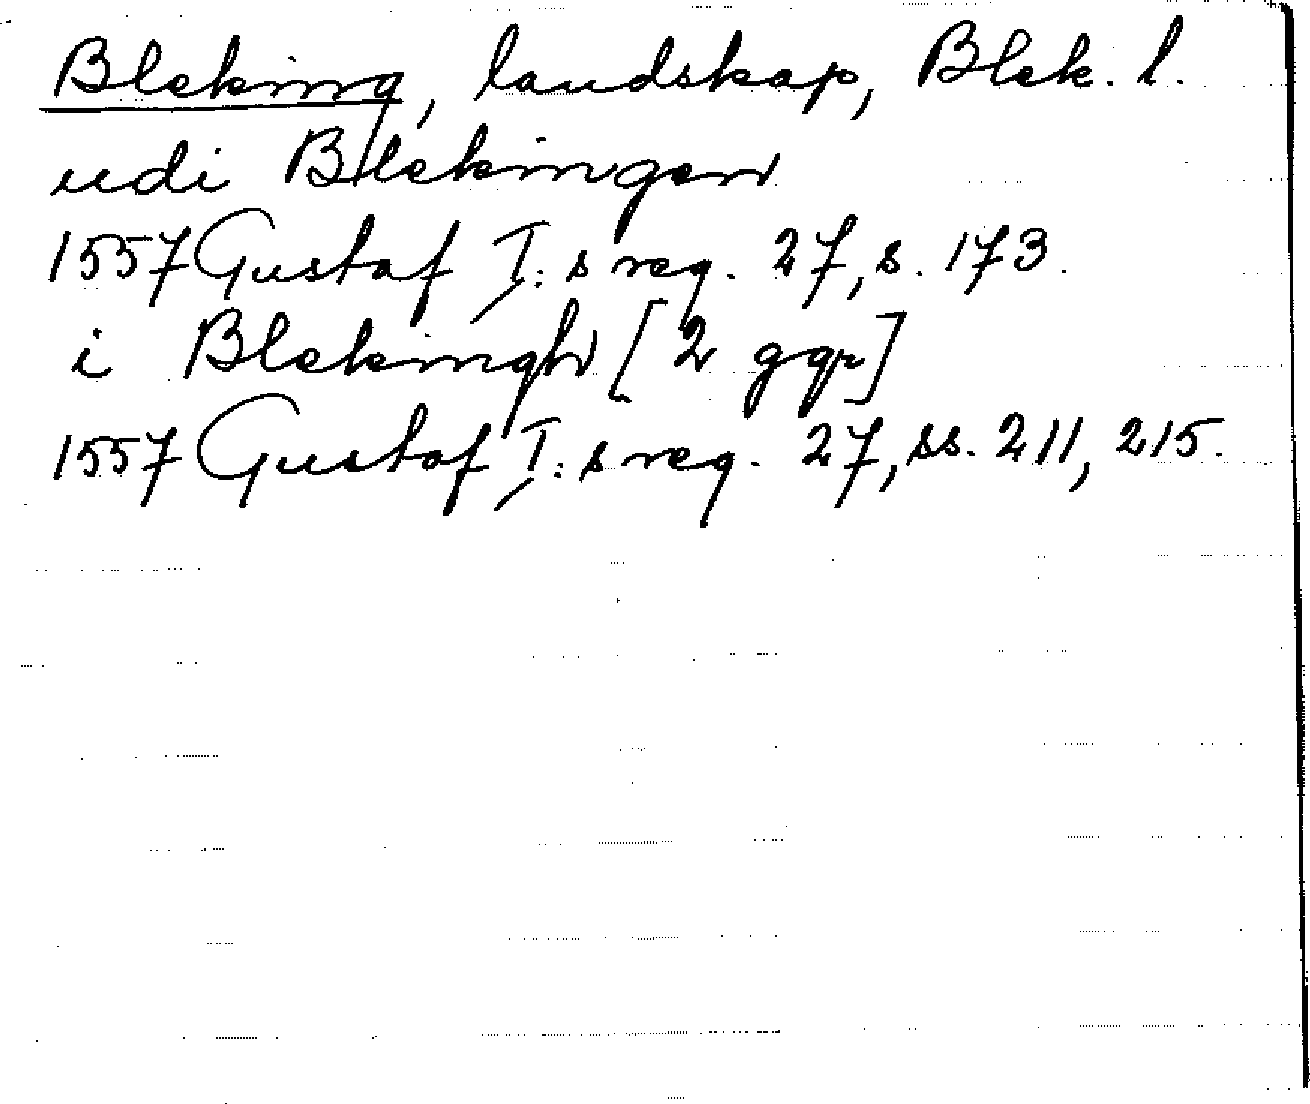 Bleking, landskap, Blek. l.
udi Blekingen
1557 Gustaf I:s reg. 27, s. 173.
i Blekingh [2 ggr]
1557 Gustaf I:s reg. 27, ss. 211, 215.